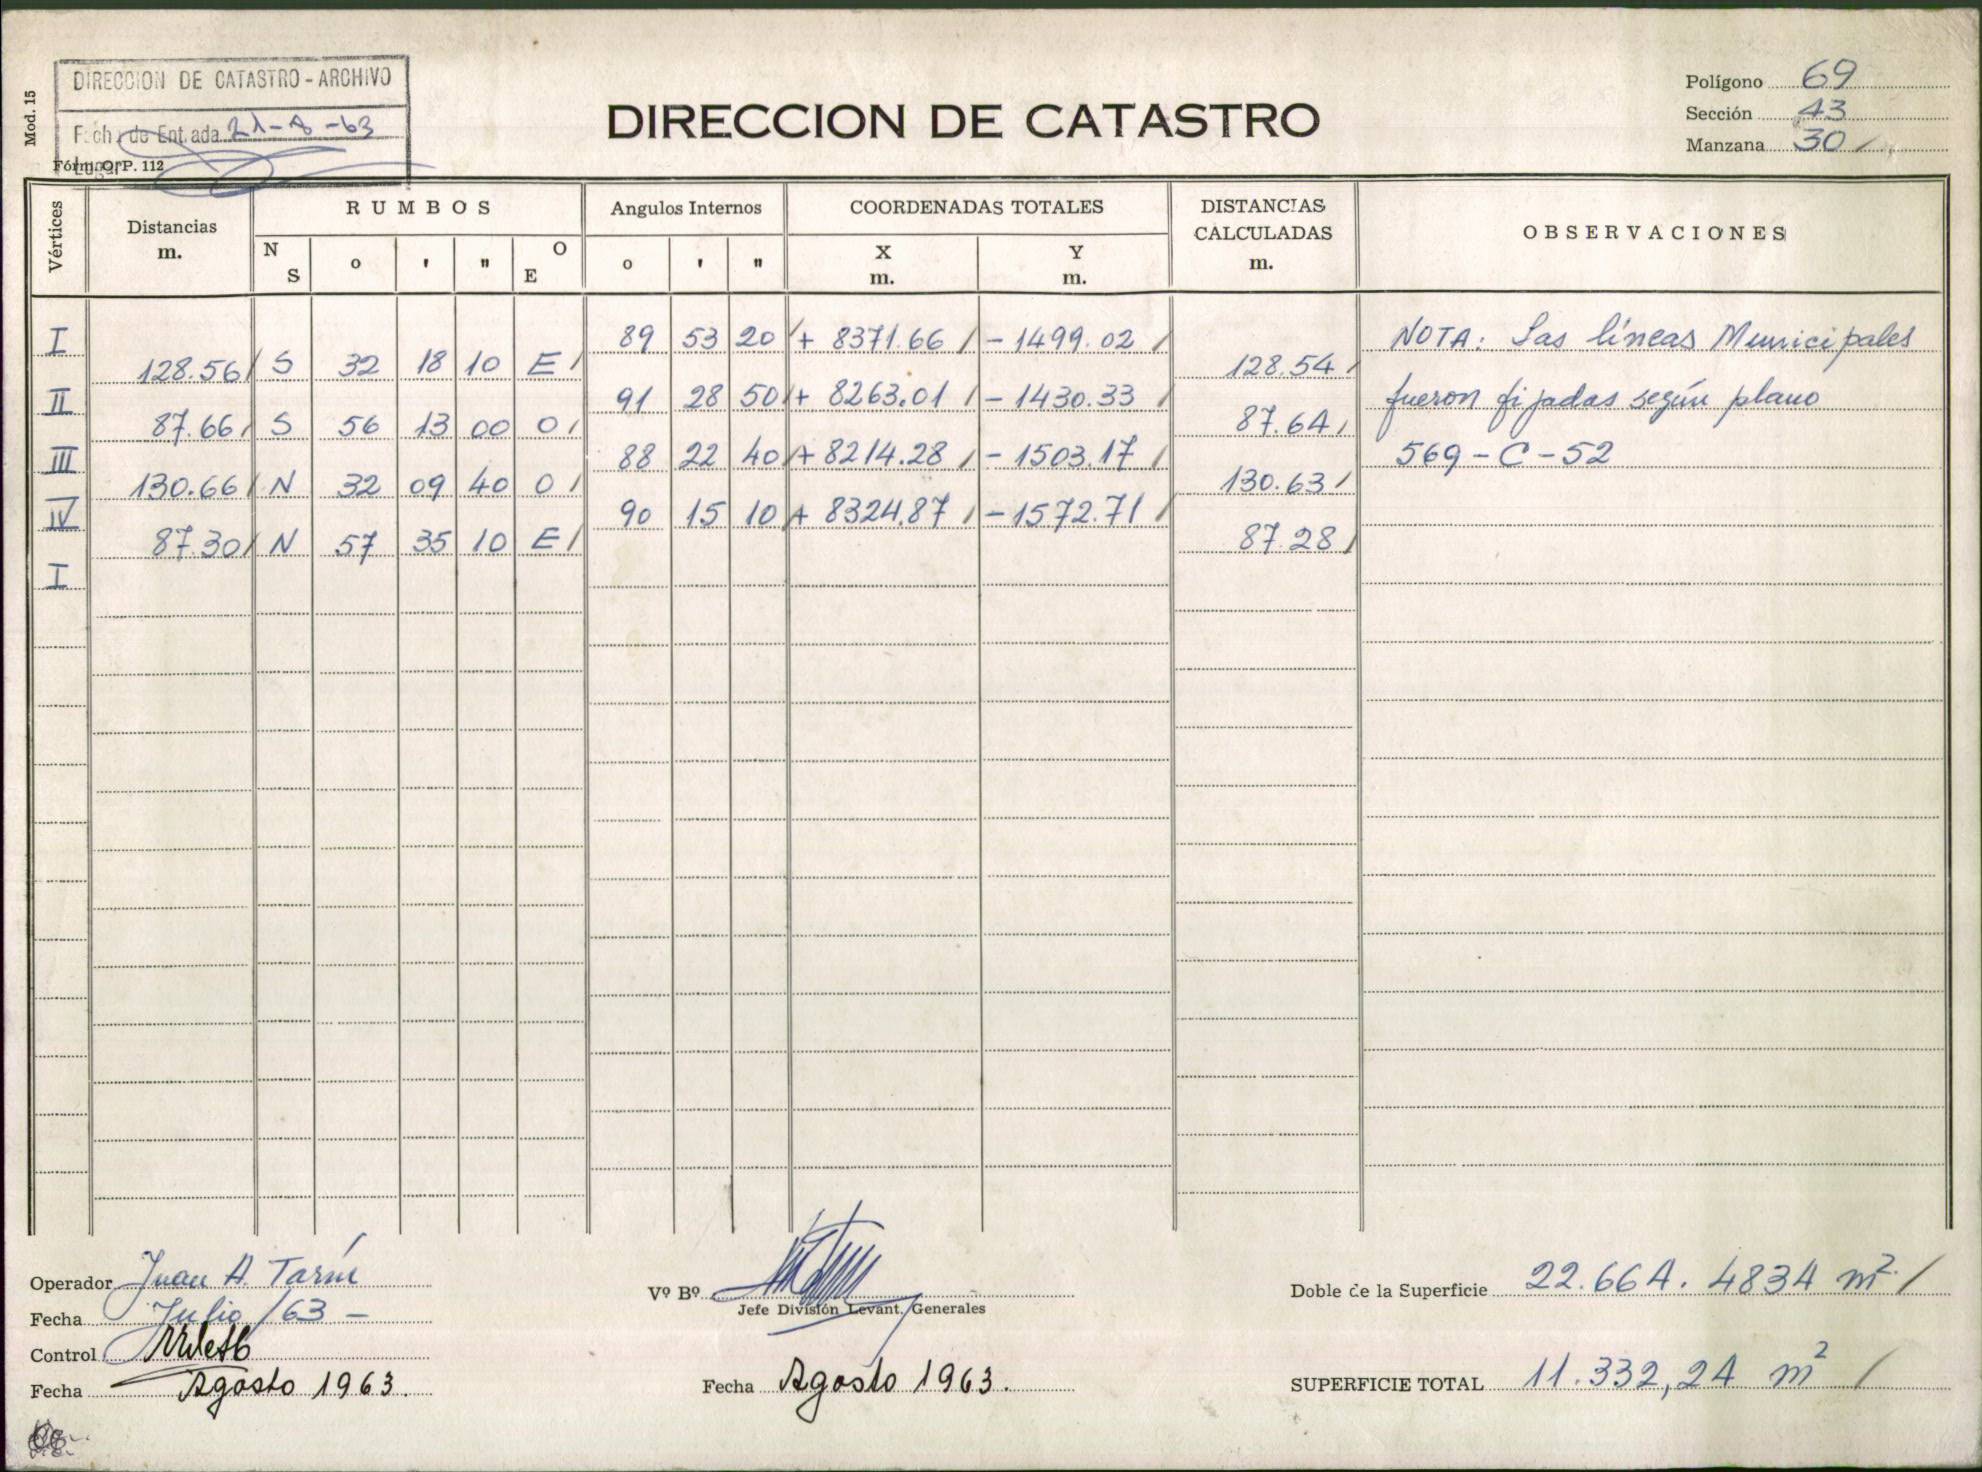 DIRECCION DE CATASTRO - ARCHIVO
Fecha de Entrada 21-8-63
Mod. 15
Fórm. O. P. 112
DIRECCION DE CATASTRO
Polígono 69
Sección 43
Manzana 30
Vértices
Distancias m.
RUMBOS
N S o ' " O E
Angulos Internos
o ' "
COORDENADAS TOTALES
X m. Y m.
DISTANCIAS CALCULADAS m.
OBSERVACIONES
I 89 53 20 + 8371.66 - 1499.02
128.56 S 32 18 10 E 128.54
II 91 28 50 + 8263.01 - 1430.33
87.66 S 56 13 00 O 87.64
III 88 22 40 + 8214.28 - 1503.17
130.66 N 32 09 40 O 130.63
IV 90 15 10 + 8324.87 - 1572.71
87.30 N 57 35 10 E 87.28
I
NOTA: Las líneas Municipales
fueron fijadas según plano
569-C-52
Operador Juan A. Tarín
Fecha Julio/63 -
Control
Fecha Agosto 1963.
Vº Bº
Jefe División Levant. Generales
Fecha Agosto 1963.
Doble de la Superficie 22.664.4834 m²
SUPERFICIE TOTAL 11.332,24 m²